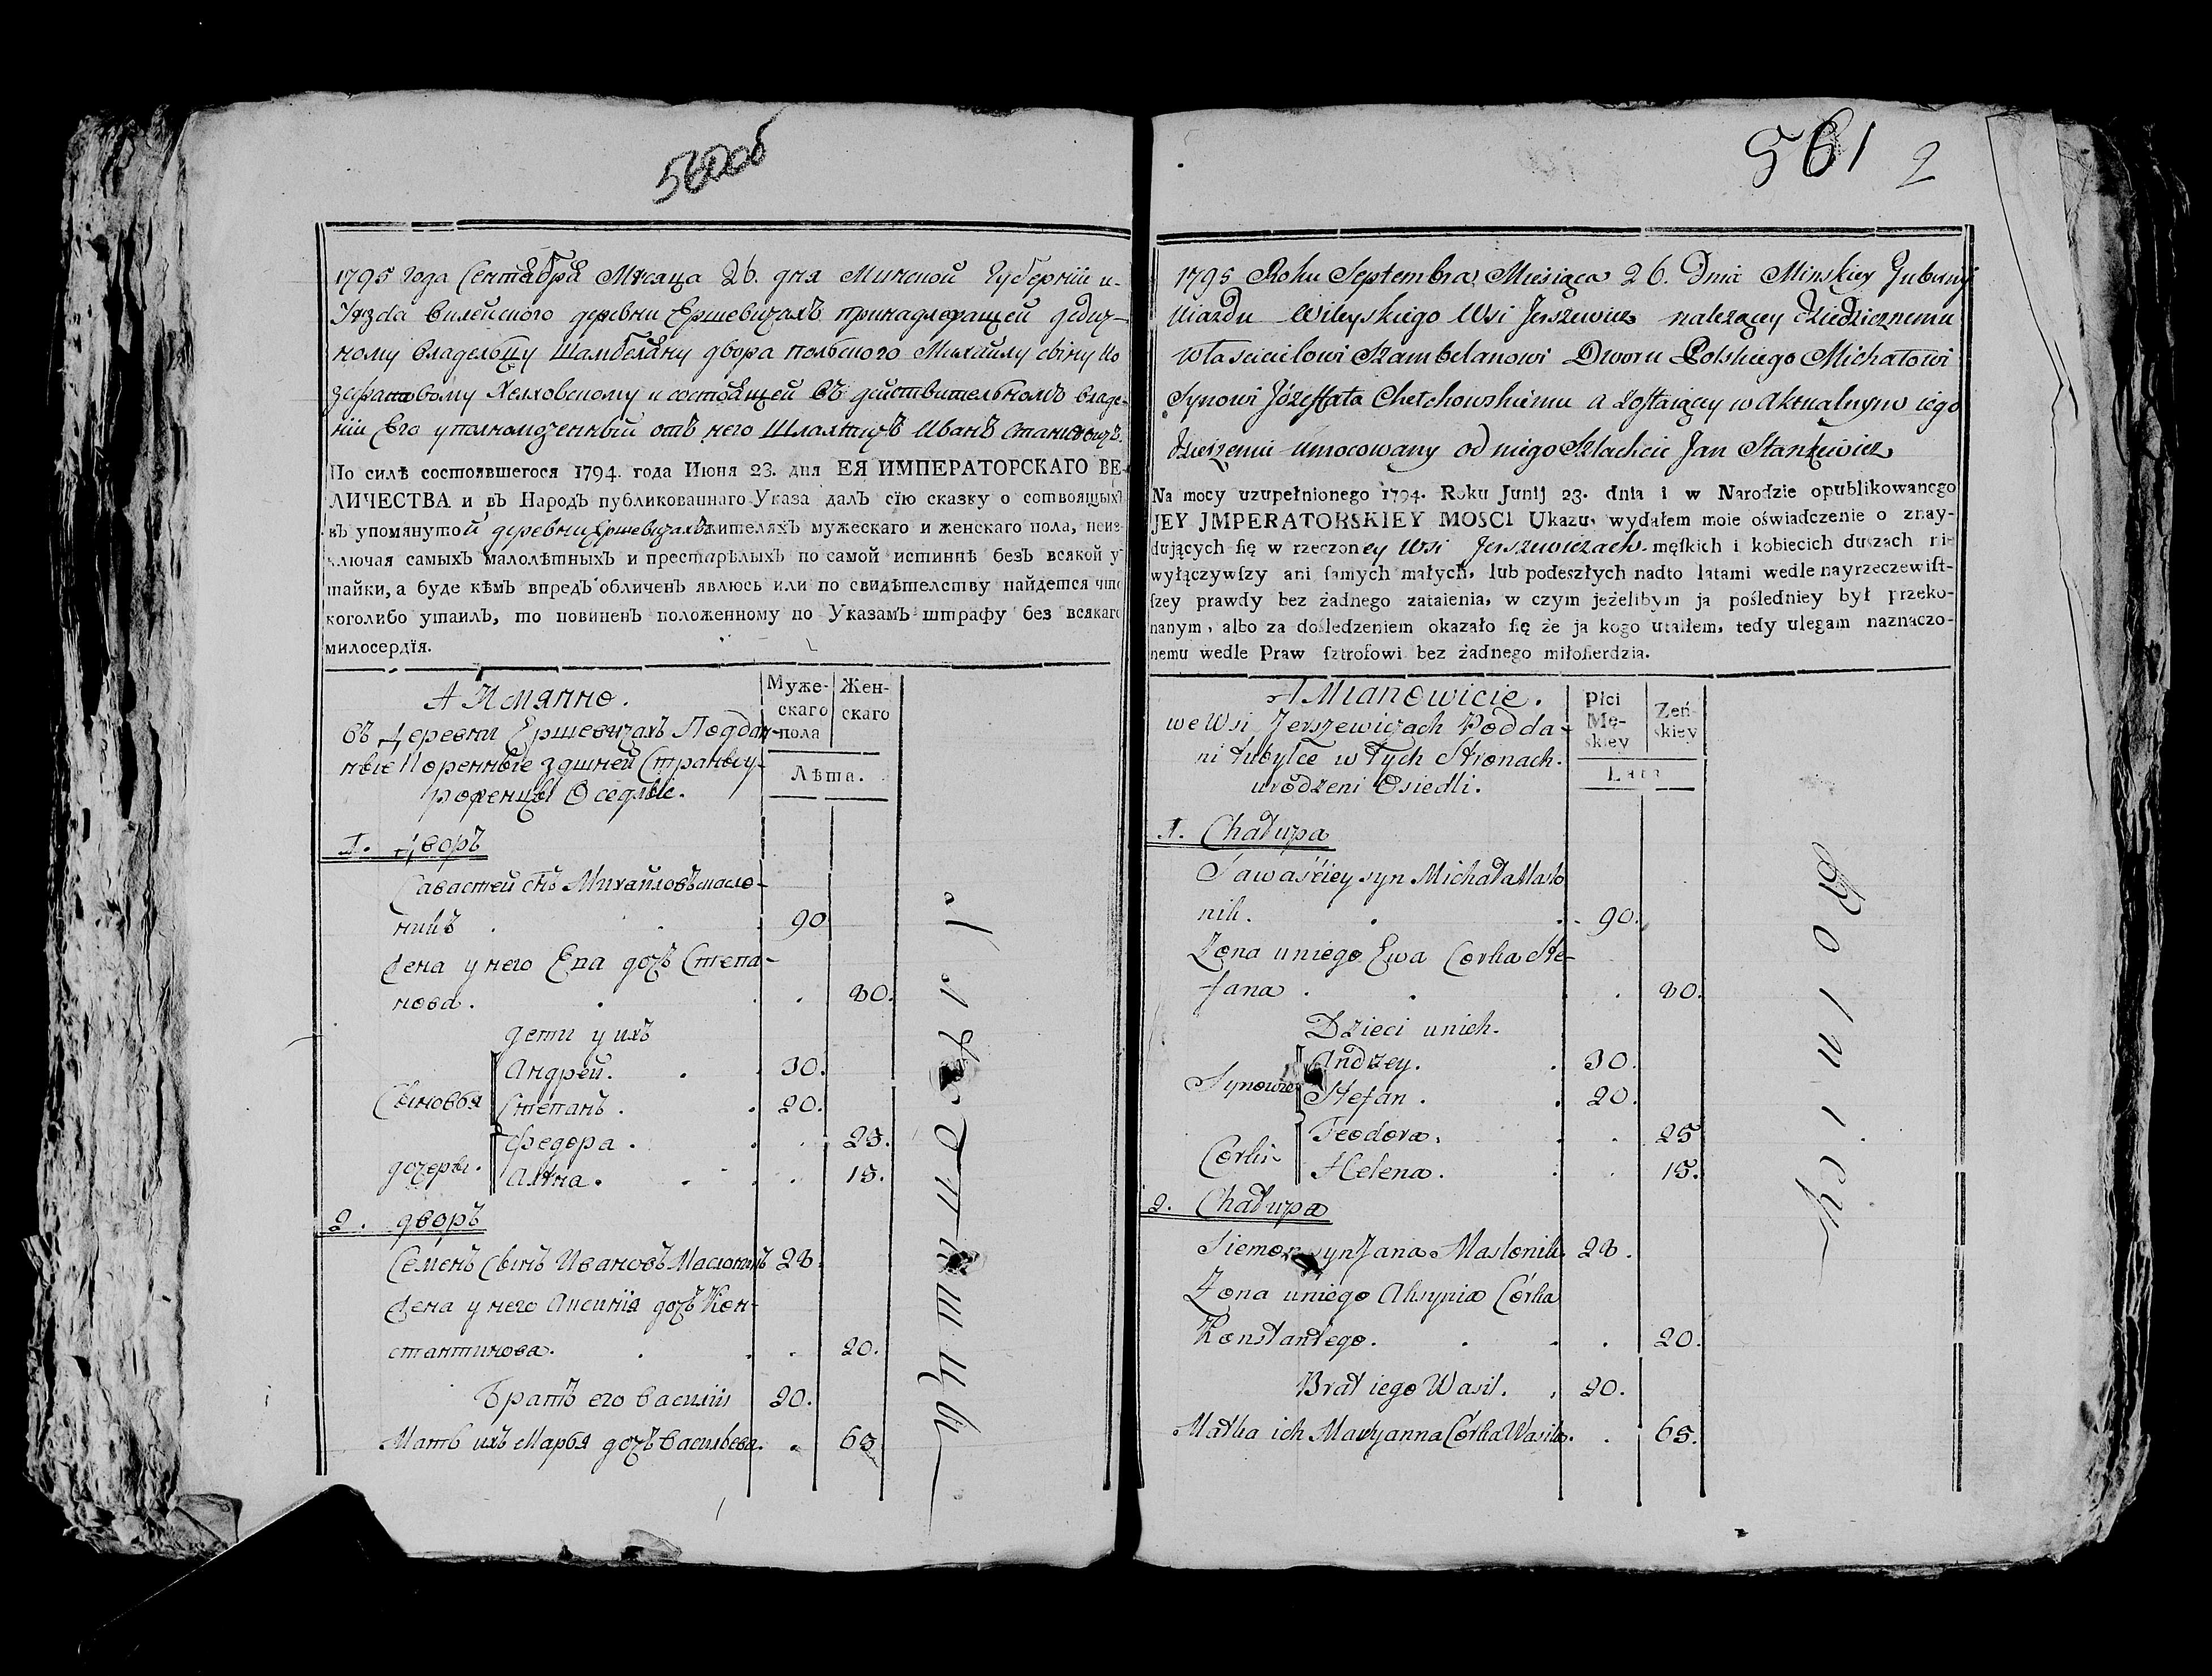 560об
1795 года Сентября Мѣсяца 26. дня Минской Губерніи и
Уѣзда вилейского деревни Ершевичахъ принадлежащей дедич-
ному владельцу Шамбеляну двора польского Михаилу сыну Ио
зафатовому Хелховскому и состоящей въ дѣйствительномъ владе-
ніи Его уполномоченный отъ него Шляхтичъ Иванъ Станкевичъ.
По силѣ состоявшегося 1794. года Июня 23. дня ЕЯ ИМПЕРАТОРСКАГО ВЕ-
ЛИЧЕСТВА и въ Народъ публикованнаго Указа далъ сїю сказку о сотвоящыхъ
въ упомянутой деревни Ершевичахъ жителяхъ мужескаго и женскаго пола, неиз-
ключая самыхъ малолѣтныхъ и престарѣлыхъ по самой истиннѣ безъ всякой у
тайки, а буде кѣмъ впредъ обличенъ явлюсь или по свидѣтелству найдется что
коголибо утаилъ, то повиненъ положенному по Указамъ штрафу без всякаго
милосердїя.
А Имянно.
въ Деревни Ершевичахъ Поддан-
ные Коренные здшней Страны у-
роженцы Оседлые.
Муже-
скаго
пола
Жен-
скаго
Лѣта.
1. Дворъ
Савастей снъ Михайловъ масло-
никъ . . 90
Жена у него Ева дочъ Степа-
нова. . . . 80.
дети у ихъ
Сыновья
Андрей. . . 30.
Степанъ . . 20.
дочеры.
Федора . . . 25.
Алѣна. . . . 15.
2. дворъ
Семенъ Сынъ Ивановъ Маслоникъ 28
Жена у него Аксинія дочъ Кон-
стантинова. . . . 20.
Братъ его василій 20.
Мать ихъ Марья дочъ васильева. . 65
561 2
1795 Roku Septembra Miesiąca 26. Dnia Minskiey Gubernij
Uiazdu Wileyskiego Wsi Jerszewicz należącey dziedzicznemu
właścicielowi Szambelanowi Dworu Polskiego Michałowi
Synowi Józeffata Chełchowskiemu a zostaiącey w Aktualnym iego
dzierzeniu umocowany od niego Szlachcic Jan Stankiewicz
Na mocy uzupełnionego 1794. Roku Junij 23. dnia i w Narodzie opublikowanego
JEY JMPERATORSKIEY MOSCI Ukazu, wydałem moie oświadczenie o znay-
dujących ſię w rzeczoney Wsi Jerszewiczach męſkich i kobiecich duszach nie
wyłączywſzy ani ſamych małych, lub podeszłych nadto latami wedle nayrzeczewiſt-
ſzey prawdy bez żadnego zataienia, w czym jeżelibym ja pośledniey był przeko-
nanym, albo za dośledzeniem okazało ſię że ja kogo utaiłem, tedy ulegam naznaczo-
nemu wedle Praw ſztrofowi bez żadnego miłoſierdzia.
A Mianowicie.
we Wsi Jerszewiczach Podda-
ni tubylce w Tych Stronach.
urodzeni Osiedli.
Płci
Mę-
skiey
Żeń-
skiey
Lata
1. Chałupa
Sawaściey syn Michała Masło
nik. . . 90.
Żona u niego Ewa Corka Ste-
fana . . . 80.
Dzieci u nich.
Synowie
Andrzey. . 30.
Stefan . . 20.
Corki
Teodora. . . 25
Helena. . . 15.
2. Chałupa
Siemon syn Jana Masłonik 28.
Żona u niego Aksynia Córka
Konstantego. . . . 20.
Brat iego Wasil. . 20.
Matka ich Maryanna Córka Wasila. . 65.